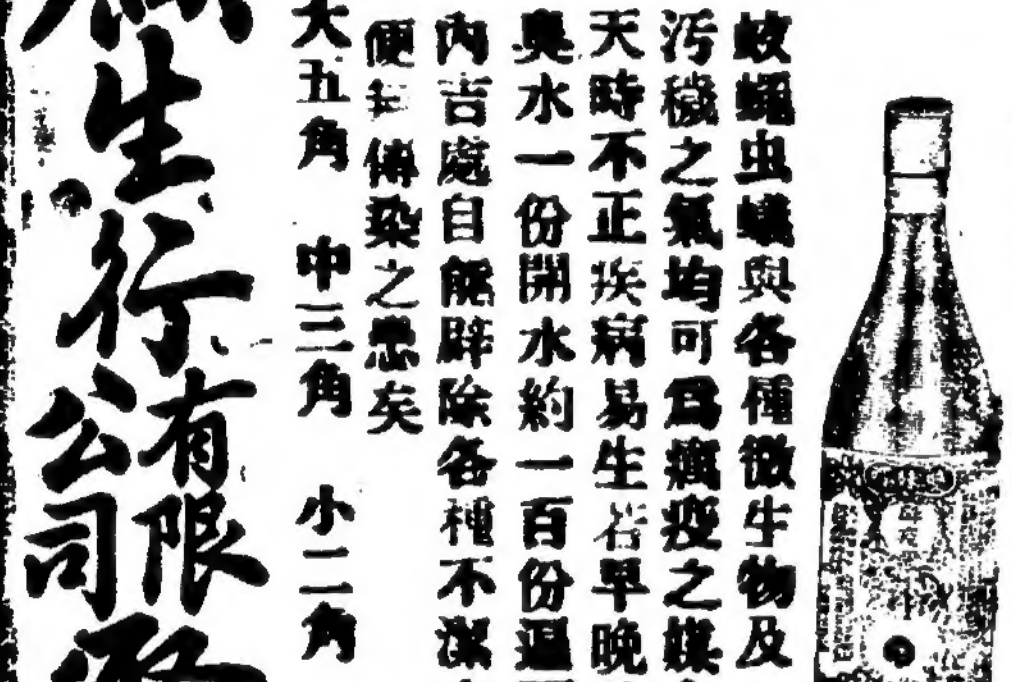 蚊蠅虫蟻與各種微生物及
污穢之氣均可爲癘疫之媒
天時不正疾病易生若早晚
臭水一份開水約一百份温
內吉處自能辟除各種不潔
便無傳染之患矣
大五角 中三角 小二角
生行有限公司